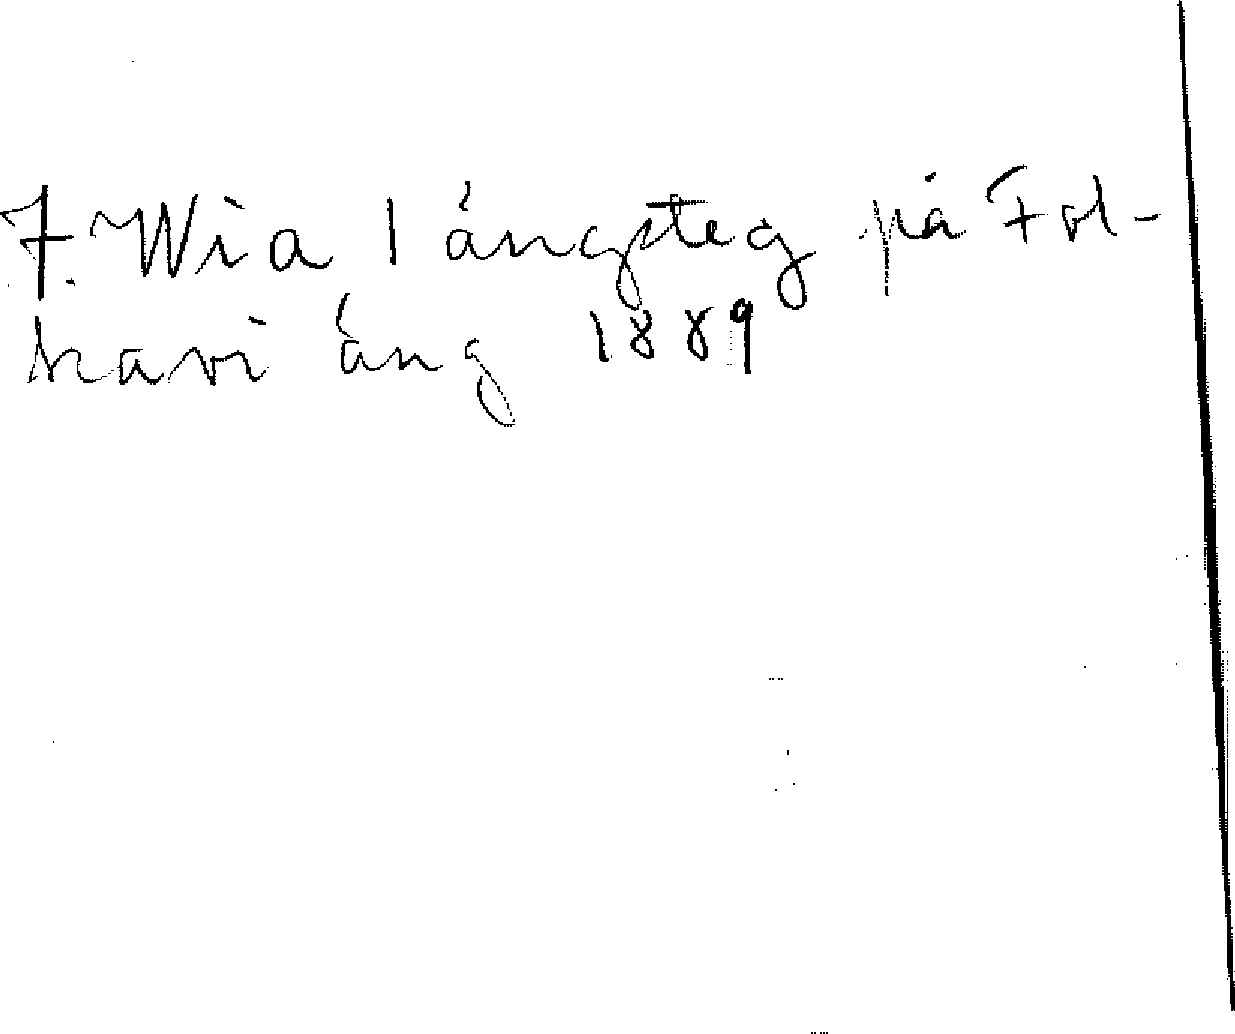 7. Wia 1 ängsteg på Fol-
kavi äng 1889